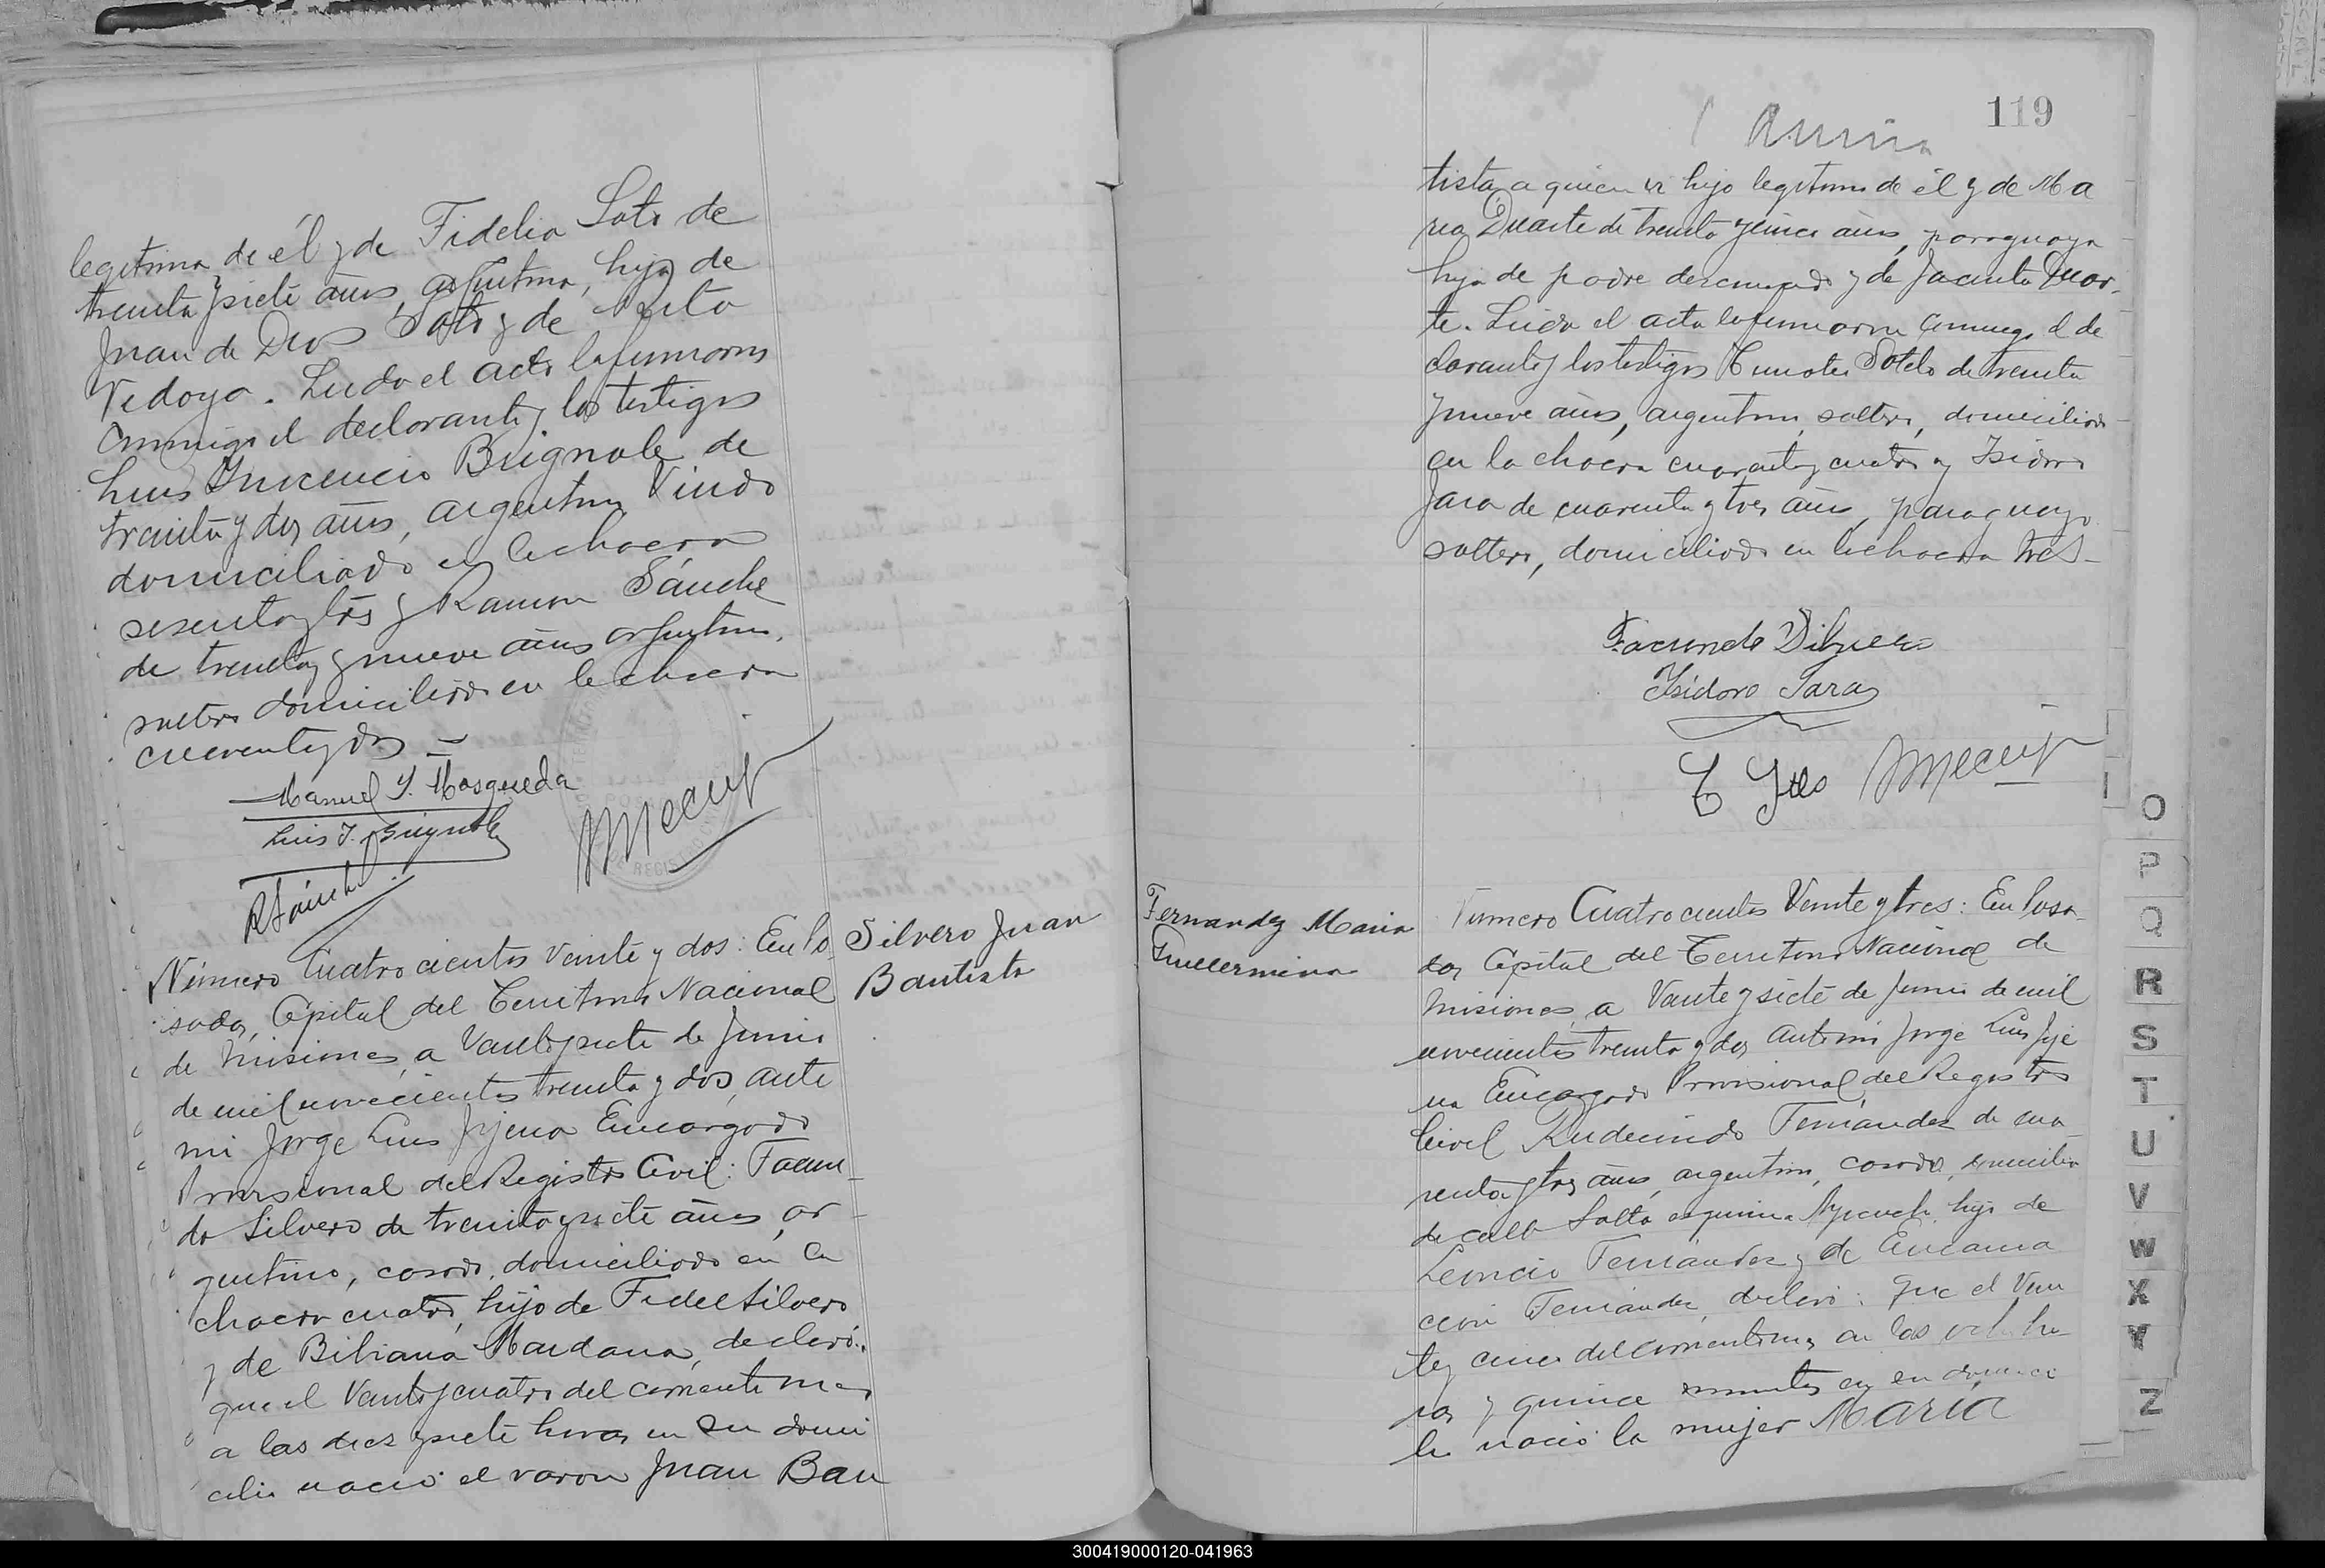 legitima de él y de Fidelia Soto de
treinta y siete años, argentina, hija de
Juan de Dios Soto y de
Vedoya. Leida el acta la firmaron
conmigo el declarante y los testigos
Luis Inocencio Brignole de
treinta y dos años, argentino, viudo
domiciliado en la chacra
sesenta y tres y Ramon Sánchez
de treinta y nueve años argentino,
soltero domiciliado en la chacra
cuarenta y dos —
Manuel Y. Mosqueda
Luis I. Brignole
R Sánchez
Silvero Juan
Bautista
Número Cuatrocientos veinte y dos: En Po-
sadas, Capital del Territorio Nacional
de Misiones, a Veinte y siete de Junio
de mil novecientos treinta y dos, ante
mi Jorge Luis Jijena Encargado
Provisional del Registro Civil: Facun-
do Silvero de treinta y siete años, ar-
gentino, casado, domiciliado en la
chacra cuatro, hijo de Fidel Silvero
y de Bibiana Maidana, declaró:
que el Veinte y cuatro del corriente mes
a las diez y siete horas en su domi
cilio nació el varon Juan Bau
119
tista a quien es hijo legitimo de él y de Ma
ria Duarte de treinta y cinco años, paraguaya
hija de padre desconocido y de Jacinta Duar-
te. Leida el acta la firmaron conmigo el de
clarante y los testigos Timoteo Sotelo de treinta
y nueve años, argentino, soltero, domiciliado
en la chacra cuarenta y cuatro y Isidoro
Jara de cuarenta y tres años, paraguayo
soltero, domiciliado en la chacra tres—
Facundo Silvero
Isidoro Jara
Fernandez Maria
Guillermina
Número Cuatrocientos Veinte y tres: En Posa-
das, Capital del Territorio Nacional de
Misiones, a Veinte y siete de Junio de mil
novecientos treinta y dos, ante mi Jorge Luis Jije
na Encargado Provisional del Registro
Civil Rudecindo Fernández de cua-
renta y tres años, argentino, casado, domicilia
do calle Salta esquina Ayacucho hijo de
Leoncio Fernández y de Encarna
ción Fernández, declaró: Que el Vein
te y cinco del corriente mes a las ocho ho
ras y quince minutos en su domici
lio nació la mujer María
O
P
Q
R
S
T
U
V
W
X
Y
Z
300419000120-041963